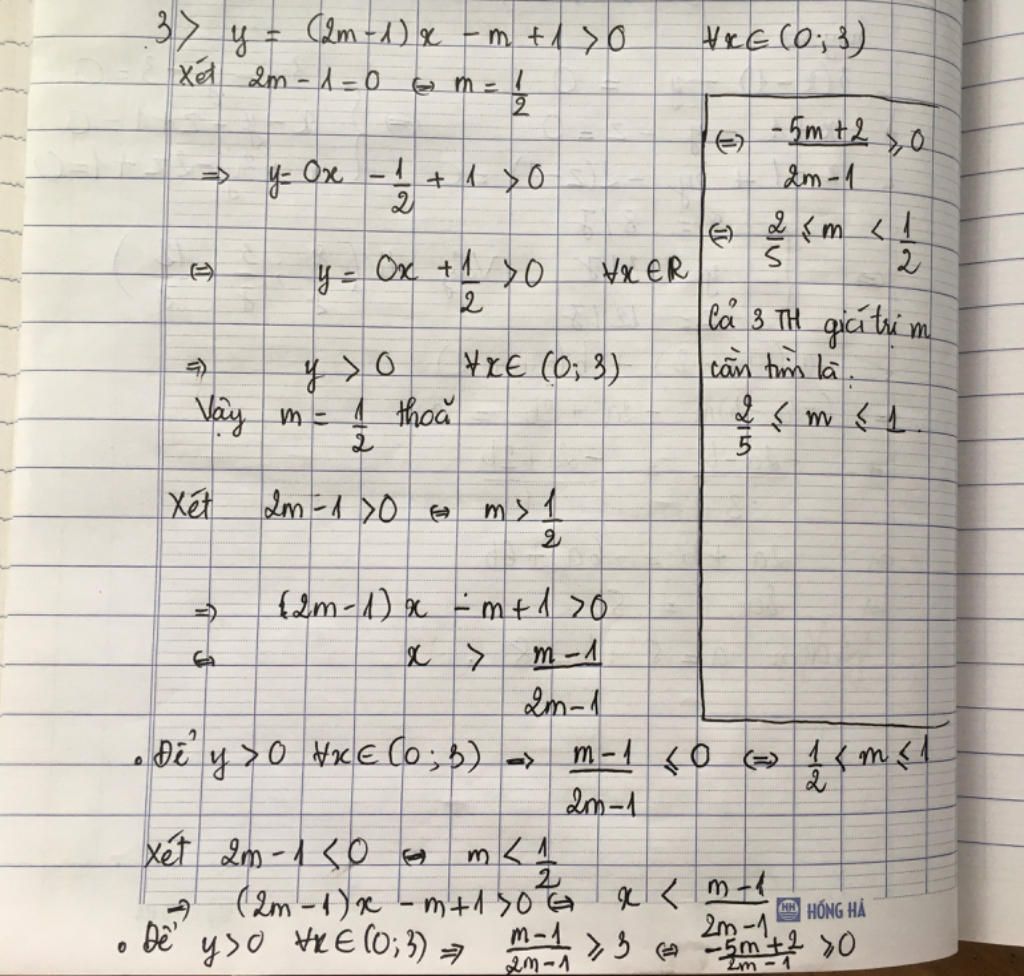 3> y = (2m-1)x - m + 1 > 0 ∀x∈(0; 3)
Xét 2m - 1 = 0 ⇔ m = 1/2
⇒ y= 0x - 1/2 + 1 > 0
⇔ y = 0x + 1/2 > 0 ∀x∈R
⇒ y > 0 ∀x∈(0; 3)
Vậy m = 1/2 thoả
Xét 2m - 1 > 0 ⇔ m > 1/2
⇒ (2m-1)x - m + 1 > 0
⇔ x > (m-1)/(2m-1)
• Để y > 0 ∀x∈(0; 3) → (m-1)/(2m-1) ≤ 0 ⇔ 1/2 < m ≤ 1
Xét 2m - 1 < 0 ⇔ m < 1/2
⇒ (2m-1)x - m+1 > 0 ⇔ x < (m-1)/(2m-1)
• Để y > 0 ∀x∈(0; 3) ⇒ (m-1)/(2m-1) ≥ 3 ⇔ (-5m+2)/(2m-1) ≥ 0
⇔ (-5m+2)/(2m-1) ≥ 0
⇔ 2/5 ≤ m < 1/2
Cả 3 TH giá trị m
cần tìm là:
2/5 ≤ m ≤ 1.
HH HỒNG HÀ